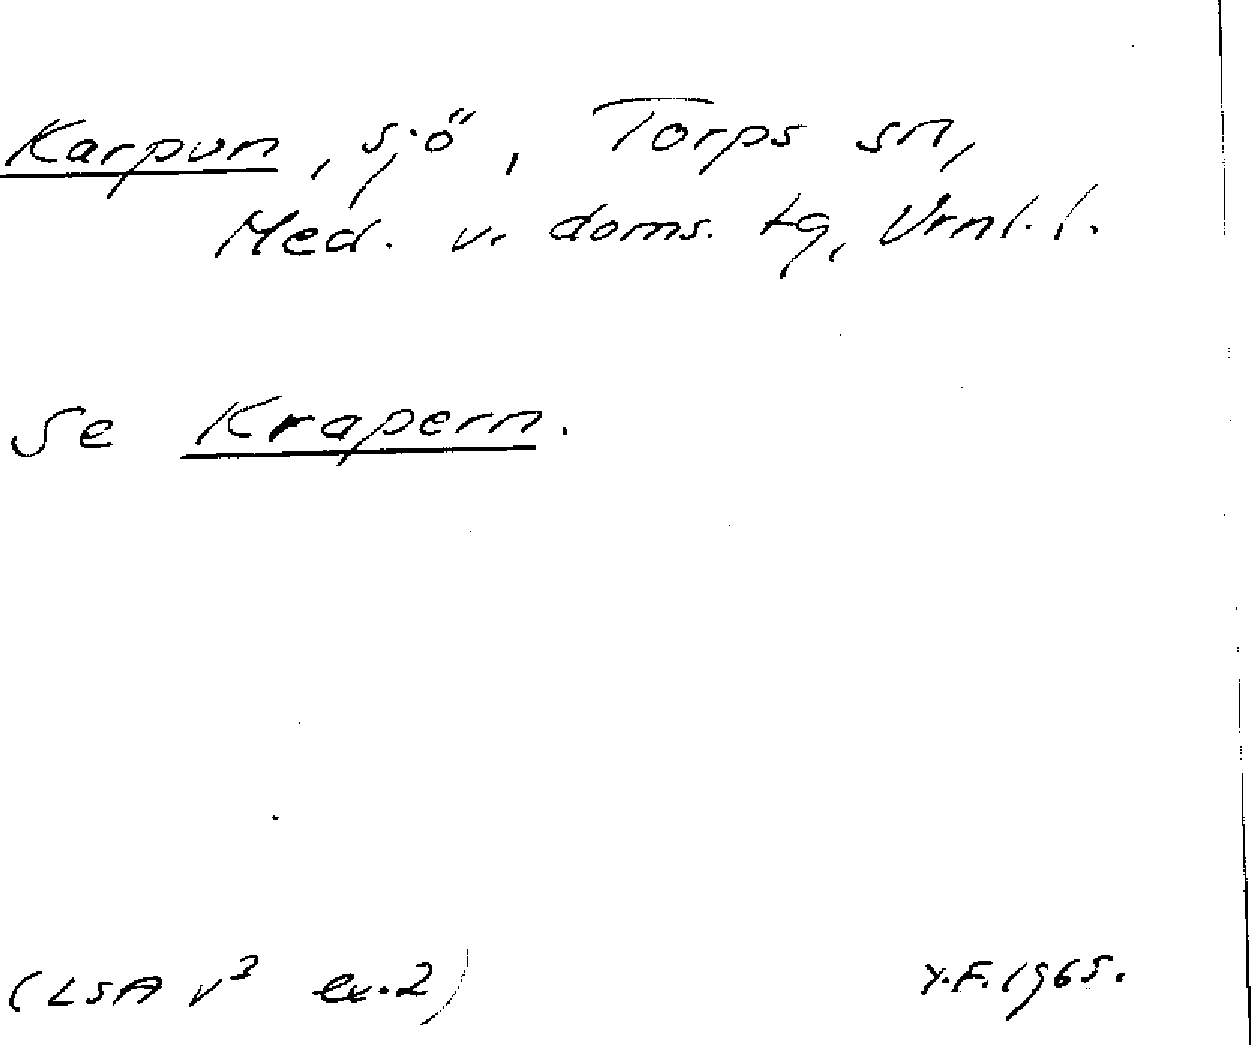 Karpun, sjö, Torps sn,
Med. v. doms. tg, Vrnl. l.
Se Krapern.
(LSA v³ ex. 2)
Y.F. 1965.